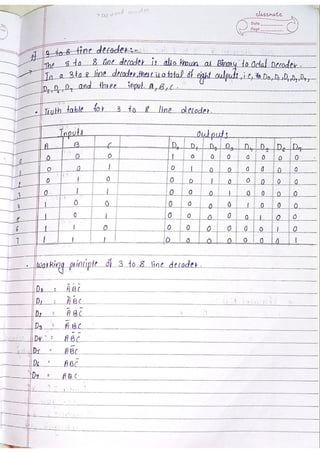 classmate
Date
Page
3 to 8 line decoder:-
The 3 to 8 line decoder is also known as Binary to Octal Decoder.
In a 3 to 8 line decoder, there is a total of eight outputs, i.e, D0, D1, D2, D3, D4,
D5, D6, D7 and three input A, B, C.
• Truth table for 3 to 8 line decoder.
Inputs Outputs
A B C D0 D1 D2 D3 D4 D5 D6 D7
0 0 0 1 0 0 0 0 0 0 0
0 0 1 0 1 0 0 0 0 0 0
0 1 0 0 0 1 0 0 0 0 0
0 1 1 0 0 0 1 0 0 0 0
1 0 0 0 0 0 0 1 0 0 0
1 0 1 0 0 0 0 0 1 0 0
1 1 0 0 0 0 0 0 0 1 0
1 1 1 0 0 0 0 0 0 0 1
• Working principle of 3 to 8 line decoder.
D0 = A̅B̅C̅
D1 = A̅B̅C
D2 = A̅BC̅
D3 = A̅BC
D4 = AB̅C̅
D5 = AB̅C
D6 = ABC̅
D7 = ABC